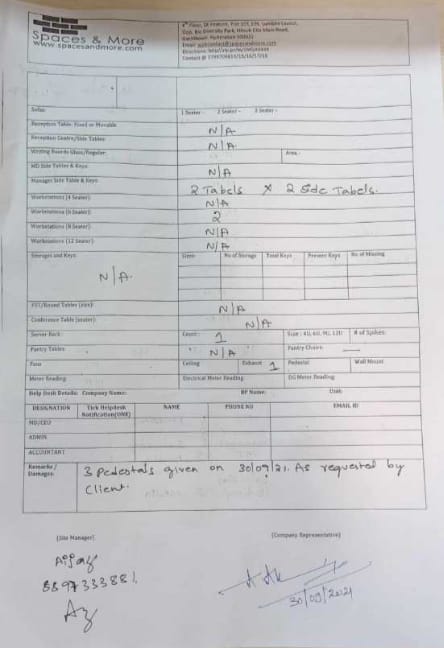 Spaces & More
www.spacesandmore.com
Sofas: 1 Seater - 2 Seater - 3 Seater -
Reception Table: Fixed or Movable N/A
Reception Centre/Side Tables N/A
Writing Boards Glass/Regular: Area -
MD Side Tables & Keys: N/A
Manager Side Table & Keys: 2 Tabels x 2 Side Tabels.
Workstations (4 Seater): N/A
Workstations (6 Seater): 2
Workstations (8 Seater): N/A
Workstations (12 Seater): N/A
Storages and Keys: Item No of Storage Total Keys Present Keys No of Missing
N/A
N/A
Conference Table (seater): N/A
Server Rack: Count: 1 # of Spikes:
Pantry Tables N/A Pantry Chairs:
Fans Ceiling Exhaust 1 Pedestal Wall Mount
Meter Reading Electrical Meter Reading: DG Meter Reading:
Help Desk Details: Company Name: BP Name: Unit:
DESIGNATION Tick Helpdesk NAME PHONE NO EMAIL ID
Notification(ONE)
MD/CEO
ADMIN
ACCOUNTANT
Remarks / 3 Pedestals given on 30/09/21. As requested by
Damages: Client.
(Site Manager) (Company Representative)
Aijaz
8897333881
30/09/2021